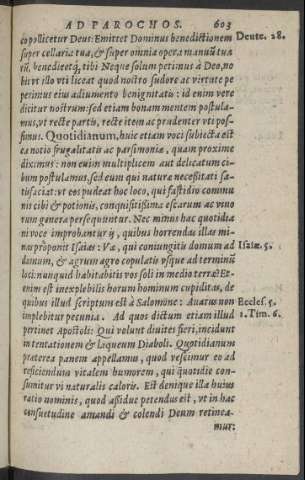 AD PAROCHOS. 603
copollicetur Deus: Emittet Dominus benedictionem Deute. 28.
super cellaria tua, & super omnia opera manuū tua
rū, benedicetq́; tibi Neque solum petimus à Deo, no
bis vt illo vti liceat quod nostro sudore ac virtute pe
perimus eius adiumento benignitatis: id enim vere
dicitur nostrum: sed etiam bonam mentem postula-
mus, vt recte partis, recte item ac prudenter vti pos-
simus. Quotidianum, huic etiam voci subiecta est
ea notio frugalitatis ac parsimoniæ, quam proxime
diximus: non enim multiplicem aut delicatum ci-
bum postulamus. sed eum qui naturæ necessitati sa-
tisfaciat: vt eos pudeat hoc loco, qui fastidio commu
nis cibi & potionis, conquisitissima escarum ac vino
rum genera persequuntur. Nec minus hac quotidia
ni voce improbantur ij, quibus horrendas illas mi-
nas proponit Isaias: Væ, qui coniungitis domum ad Isaiæ. 5.
domum, & agrum agro copulatis vsque ad terminū
loci: nunquid habitabitis vos soli in medio terræ? Et-
enim est inexplebilis horum hominum cupiditas, de
quibus illud scriptum est à Salomone: Auarus non Eccles. 5.
implebitur pecunia. Ad quos dictum etiam illud 1. Tim. 6.
pertinet Apostoli: Qui volunt diuites fieri, incidunt
in tentationem & laqueum Diaboli. Quotidianum
præterea panem appellamus, quod vescimur eo ad
reficiendum vitalem humorem, qui quotidie con-
sumitur vi naturalis caloris. Est denique illa huius
ratio nominis, quod assidue petendus est, vt in hac
consuetudine amandi & colendi Deum retinea-
mur: